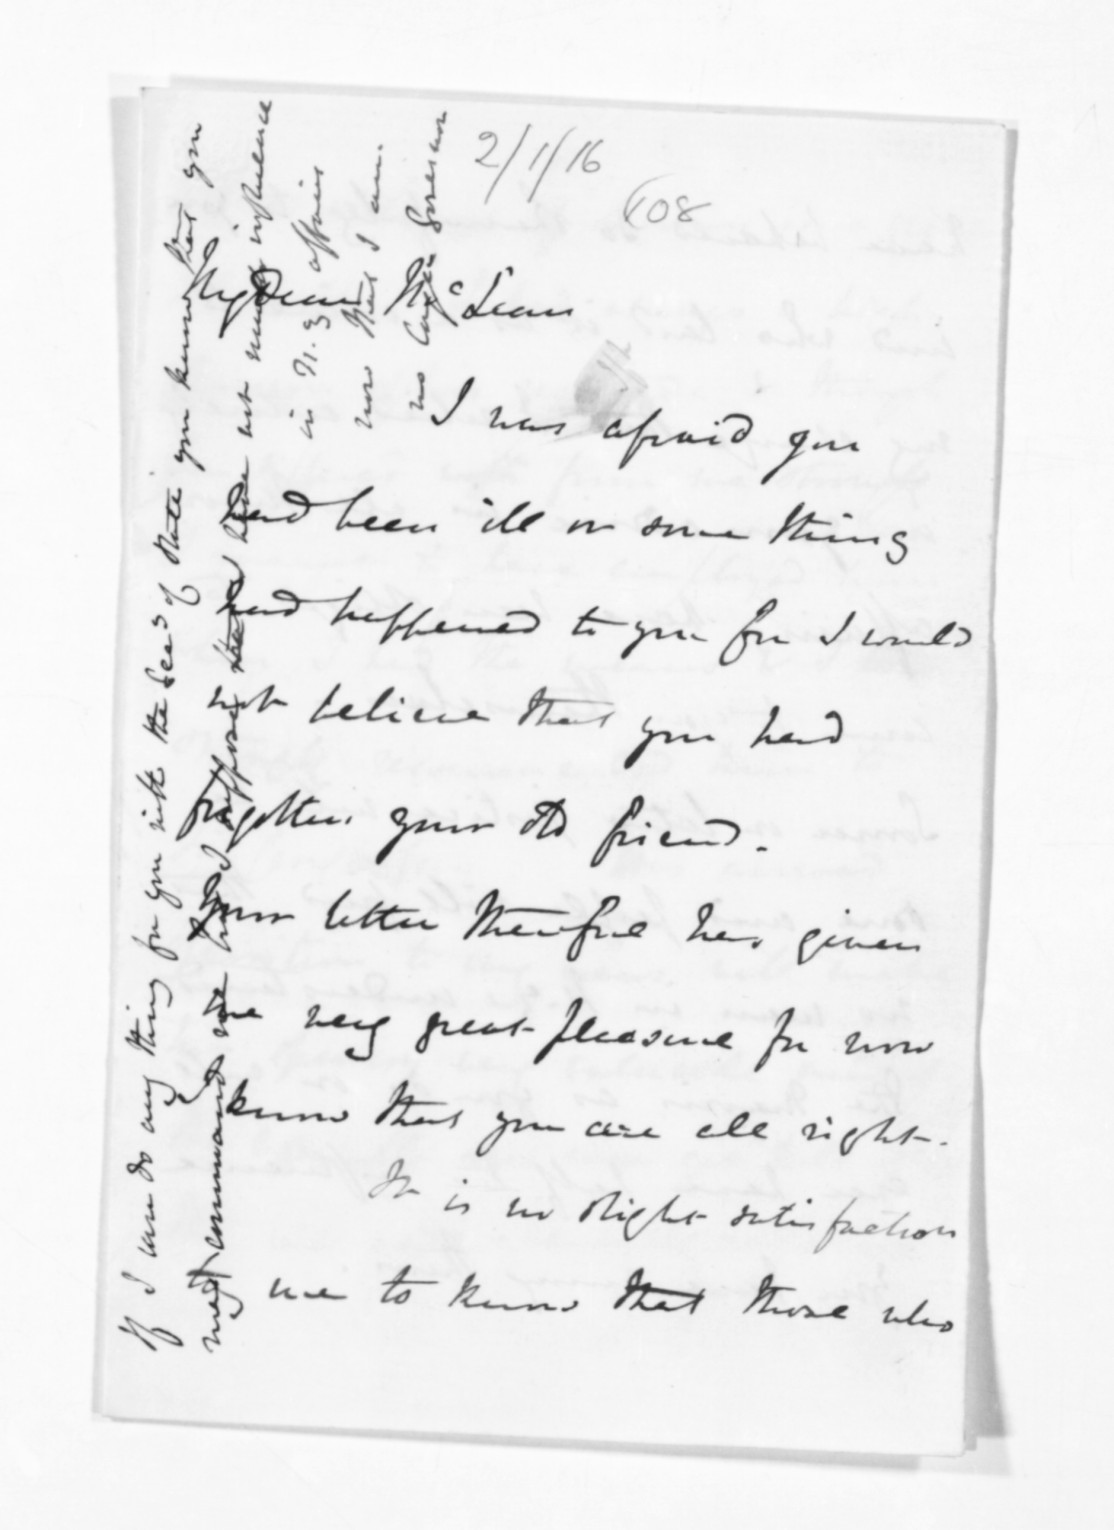 2/1/16
108
My Dear McLean
I was afraid you
had been ill or some thing
had happened to you for I would
not believe that you had
forgotten your old friend.
Your letter therefore has given
me very great pleasure for now
I know that you are all right.
It is no slight satisfaction
to me to know that those who
If I can do any thing for you with the Sec of State you know that you
may command me but I suppose that I have not much influence
in N.Z affairs
now that I am
no longer Governor